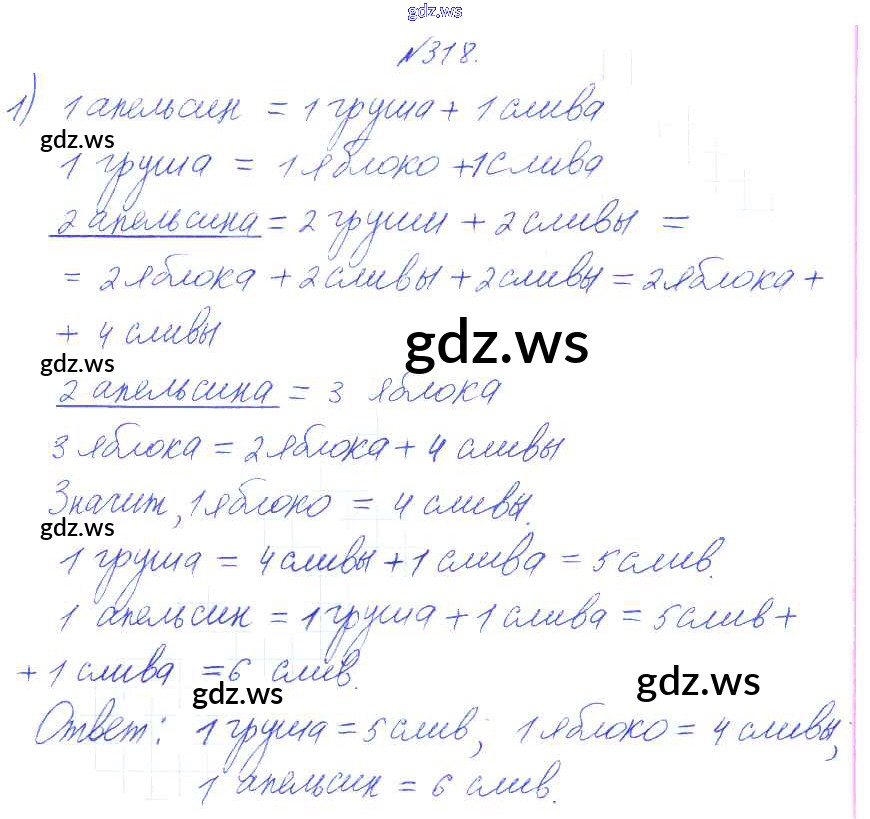 gdz.ws
№318.
1) 1 апельсин = 1 груша + 1 слива
gdz.ws
1 груша = 1 яблоко + 1 слива
2 апельсина = 2 груши + 2 сливы =
= 2 яблока + 2 сливы + 2 сливы = 2 яблока +
+ 4 сливы
gdz.ws
gdz.ws
2 апельсина = 3 яблока
3 яблока = 2 яблока + 4 сливы
Значит, 1 яблоко = 4 сливы.
gdz.ws
1 груша = 4 сливы + 1 слива = 5 слив.
1 апельсин = 1 груша + 1 слива = 5 слив +
+ 1 слива = 6 слив.
gdz.ws
gdz.ws
Ответ: 1 груша = 5 слив; 1 яблоко = 4 сливы;
1 апельсин = 6 слив.